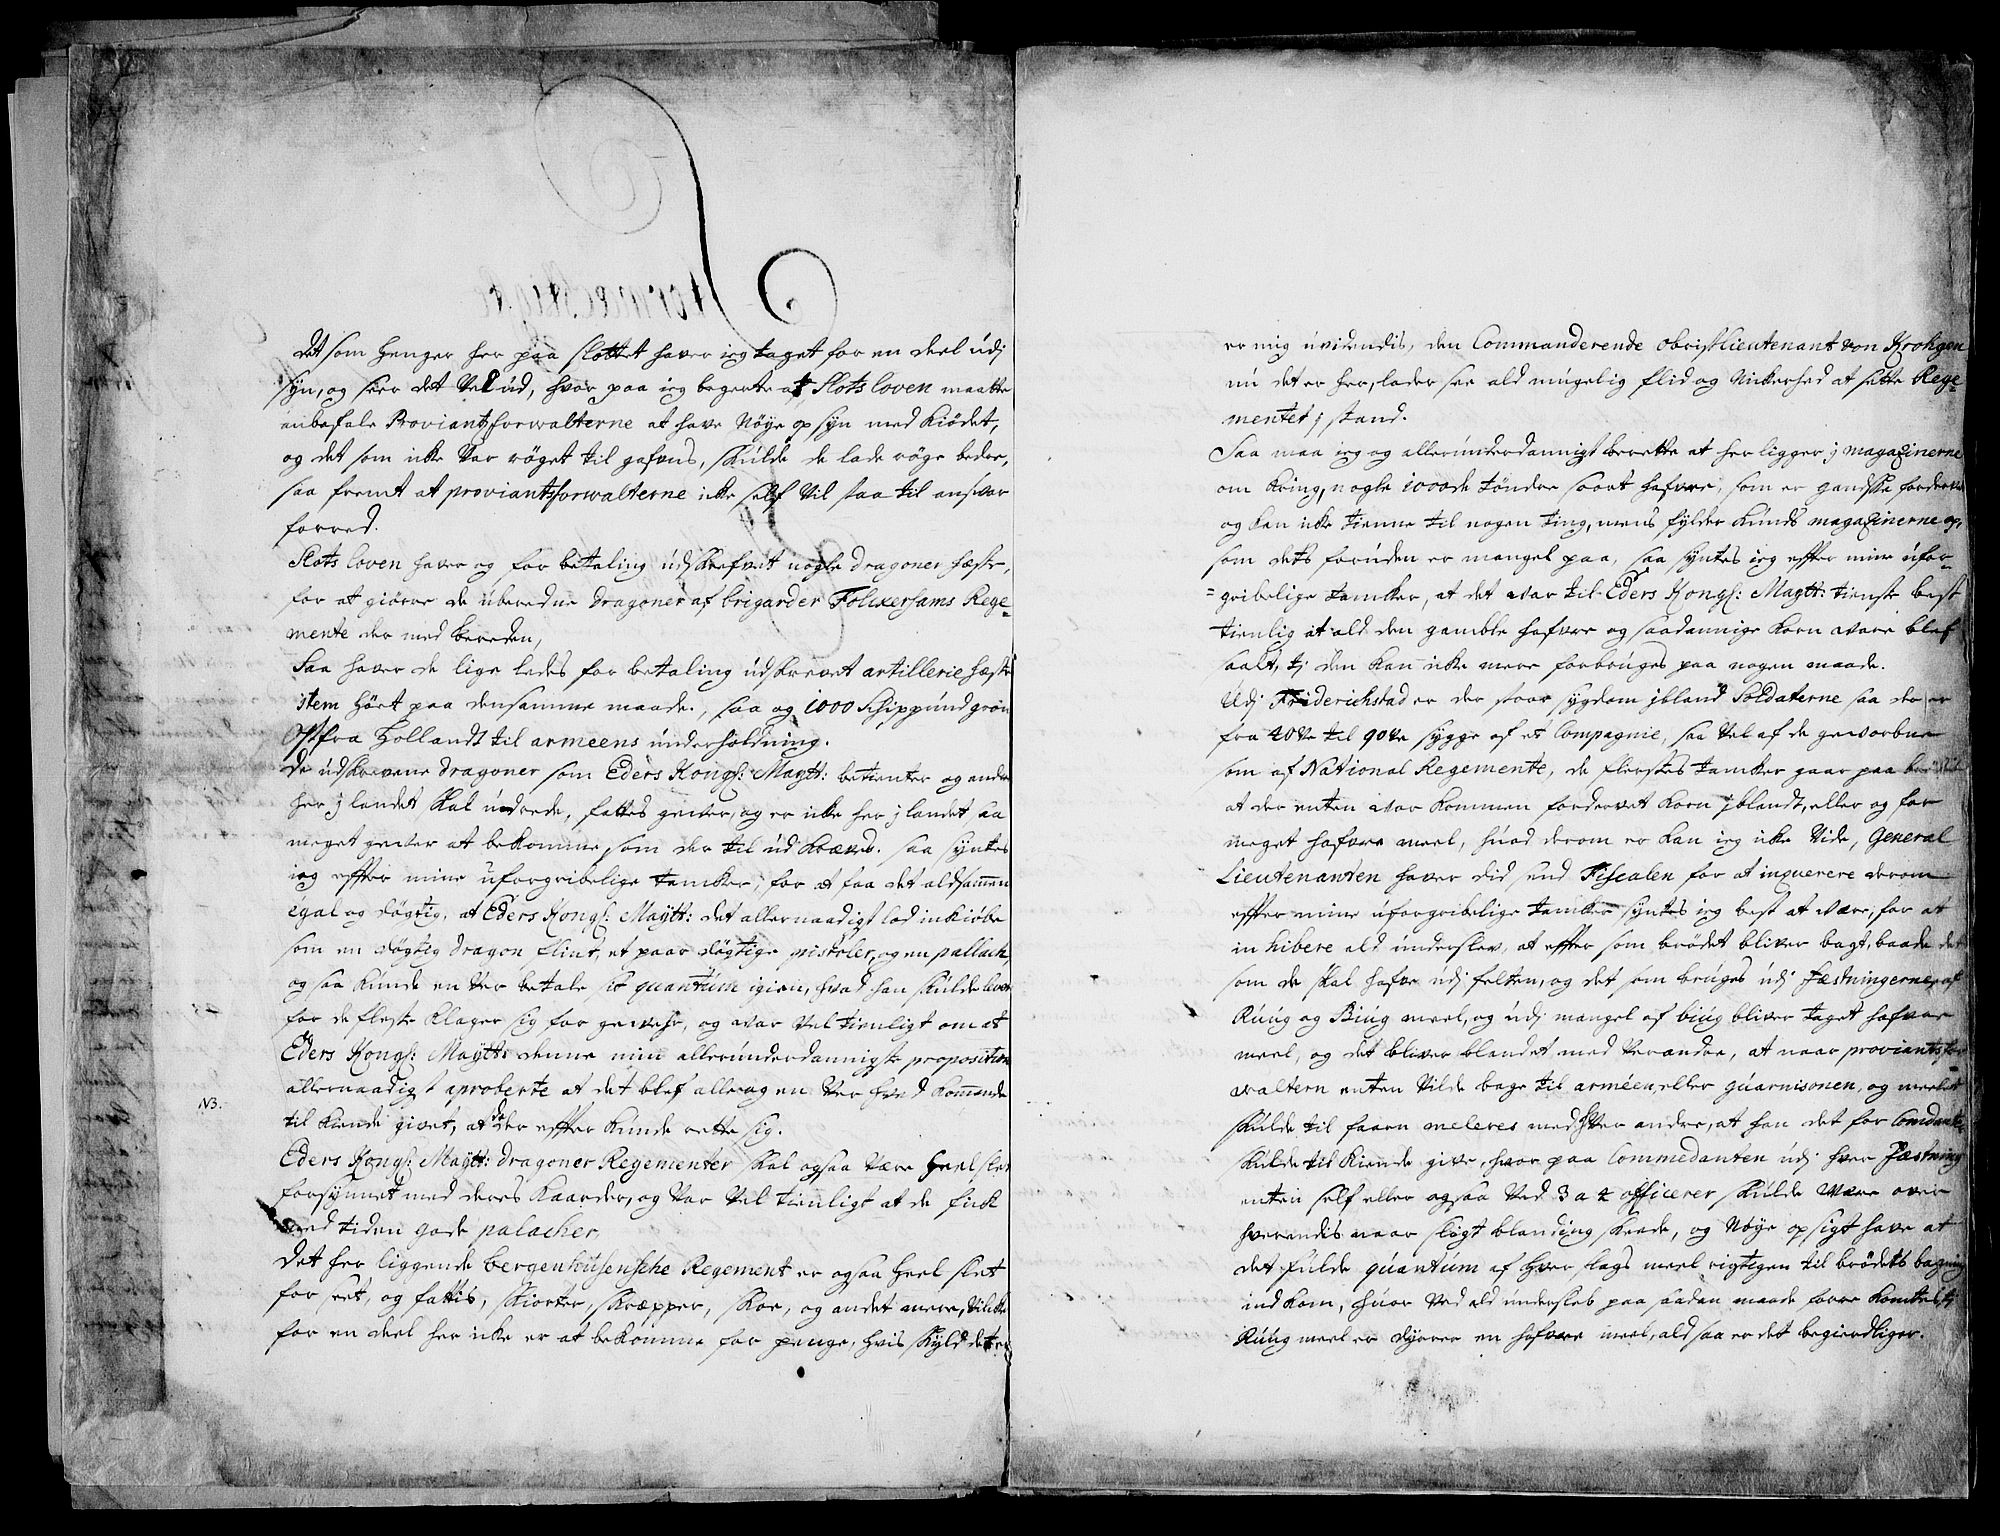 det som henger her paa slottet haver ieg taget for en deel udj
syn, og seer det vel ud, hvor paa ieg begerte at Slots loven maatte
anbefale Proviantsforwalterne at have nöye op syn med kiödet,
og det som icke var röget til gafvns, skulde de lade röge bedre,
saa fremt at proviantsforwalterne icke self vil staa til ansvar
forved.
Slots loven haver og for betaling udskrefvet nogle dragoner hæste,
for at giörre de uberedne dragoner af brigarder Folckersams Rege-
mente der med bereden,
Saa haver de lige ledes for betaling udskrevet artillerie hæste
item höet paa densamme maade, saa og 1000 Schippund gron
Ost fra Hollandt til armeens underholdning.
De udskrevene dragoner som Eders Kongl: Maytt: betienter og andre
her j landet skal udrede, fattes gever, og er icke her j landet saa
meget gever at bekomme som der til ud kræves. saa syntes
ieg effter mine uforgribelige tancker, for at faa det aldsammen
egal og dögtig, at Eders Kongl: Maytt: det allernaadigst lod inkiöbe
som en dögtig dragon flint, et paar dögtige pistoler, og en pallach
og saa kunde en ver betale sit quantum igien, hvad han skulde levere
for de fleste klager sig for gevehr, og var vel tienligt om at
Eders Kongl: Maytt: denne min allerunderdannigste proposition
allernaadigst aproberte at det blef alle og en ver hved kommende
N3.
til kiende givet, at de der effter kunde rette sig.
Eders Kongl: Maytt: dragoner Regementer skal ogsaa være heel slet
forsynnet med deres kaarder, og var vel tienligt at de fick
med tiden gode palacher,
Det her liggende bergenhusensche Regement er ogsaa heel slet
for seet, og fattis, skiorter, skræpper, skoe, og andet mere, vilcke
for en deel her icke er at bekomme for penge, hvis skyld det er
er mig uvidendis, den Commanderende obristlieutenant von Krohgen
nu det er her, lader see ald mugelig flid og vickerhed at sette Rege-
mentet j stand.
Saa maa ieg og allerunderdannigst berette at her ligger j magazinerne
om kring, nogle 1000de tönder svart hafvre, som er gandske fordervet
og kan icke tienne til nogen ting, mens fylder kuns magazinerne op,
som dets foruden er mangel paa, saa syntes ieg effter mine ufor-
gribelige tancker, at det var til Eders Kongl: Maytt: tienste best
tienlig at ald den gamble hafvre og saadannige korn vare blef
saalt, tj den kan icke mere forbruges paa nogen maade.
Udj Friderichstad er der stoor sygdom jbland Soldaterne saa der er
fra 40ve til 90ve sygge af et Compagnie, saa vel af de gevorbne
som af National Regemente, de fleestes tancker gaar paa
at der enten var kommen fordervet korn jblandt, eller og for
meget hafvre meel, huad derom er kan ieg icke vide, General
Lieutenanten haver did send Fiscalen for at inquerere derom
effter mine uforgribelige tancker syntes ieg best at være, for at
in hibere ald underslev, at effter som brödet bliver bagt, baade det
som de skal hafve udj felten, og det som bruges udj fæstningerne, af
Ruug og Biug meel, og udj mangel af biug bliver taget hafvre
meel, og det bliver blandet med verandre, at naar proviantsfor-
waltern enten vilde bage til arméen, eller guarnisonen, og meelet
skulde til faarn meleres med hver andre, at han det for Comdante
skulde til kiende give, hvor paa Commedanten udj hver fæstning
enten self eller ogsaa ved 3 a 4 officerer skulde være over
hverendis naar sligt blanding skeede, og nöye op sigt have at
det fulde quantum af hver slags meel rigtigen til brödets bagning
ind kom, huor ved ald undersleb paa saadan maade forre komtes, tj
Ruug meel er dyrere en hafvre meel, ald saa er det begierdliger.